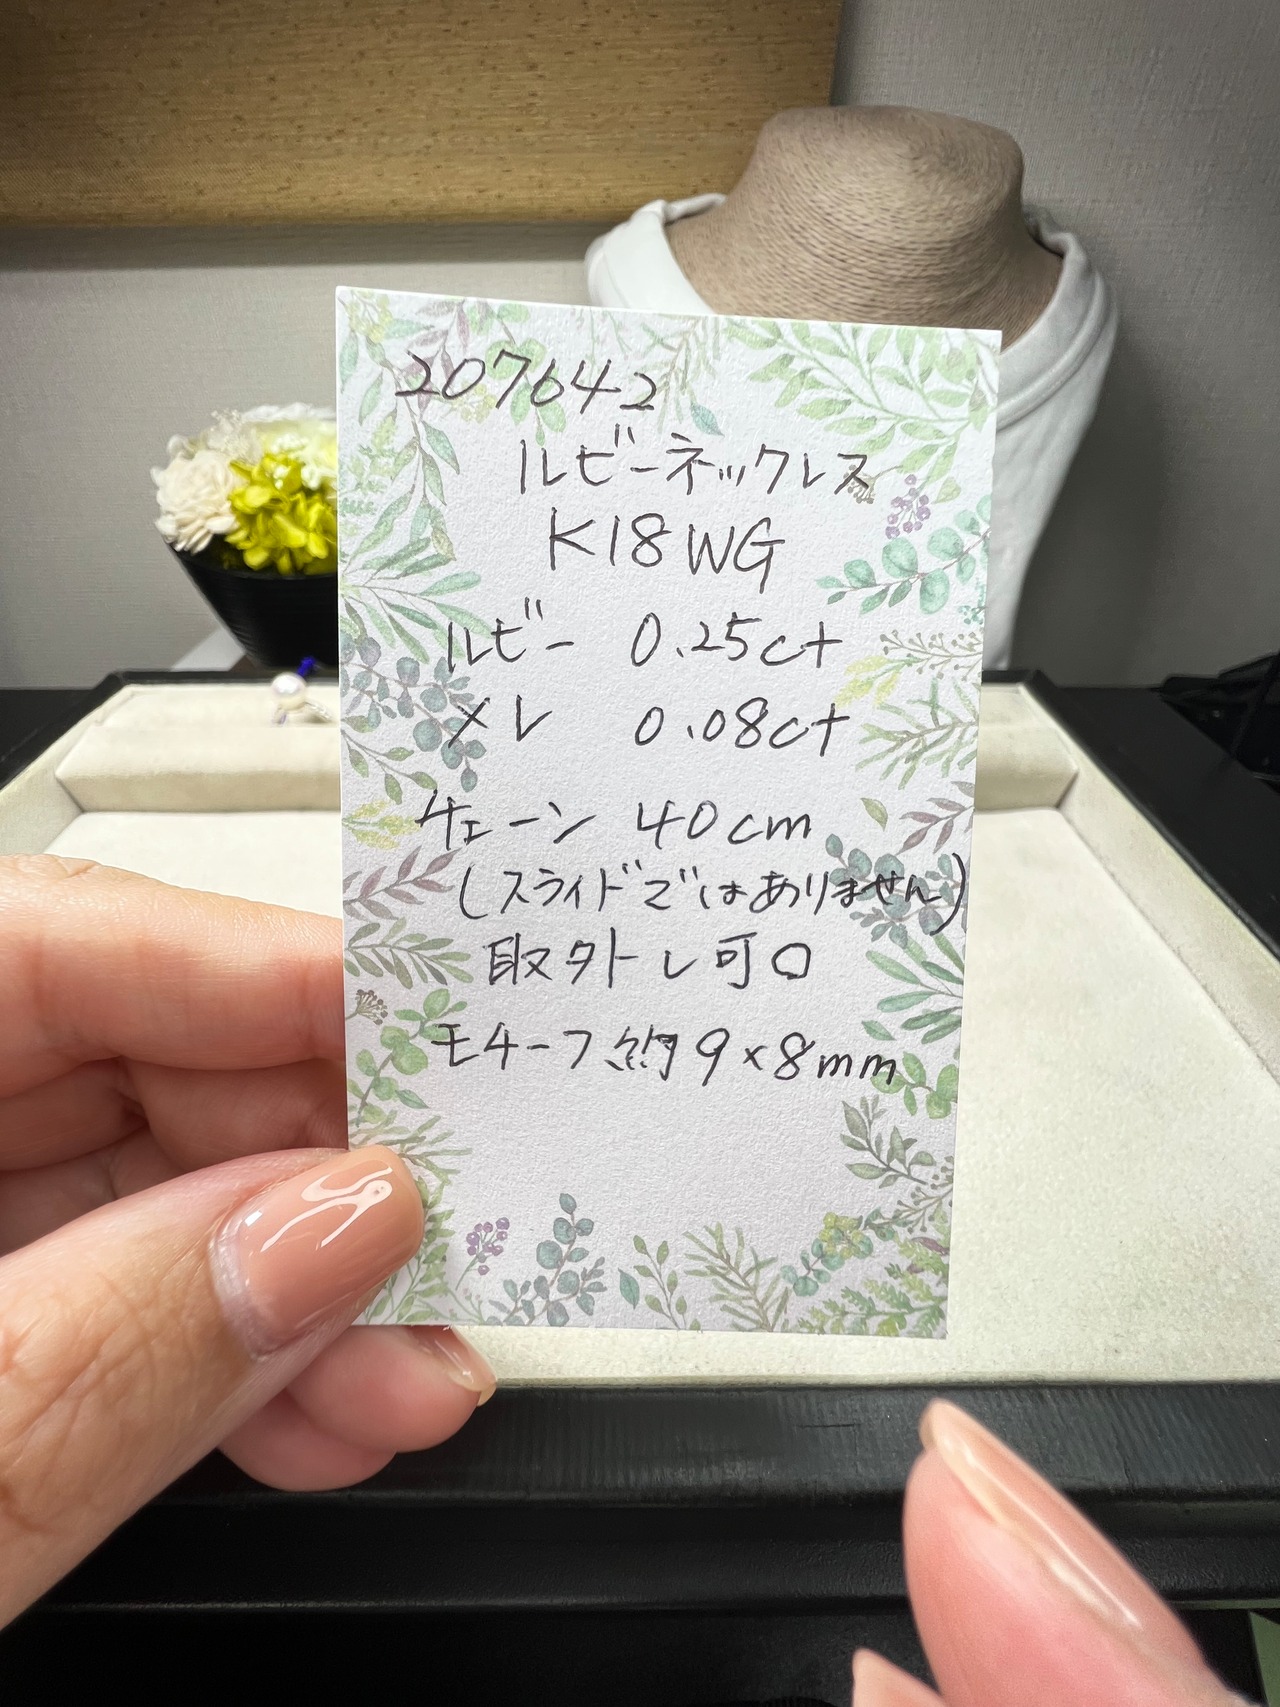 207642
ルビーネックレス
K18WG
ルビー 0.25ct
メレ 0.08ct
チェーン 40cm
(スライドではありません)
取外トレ可〇
モチーフ約9×8mm